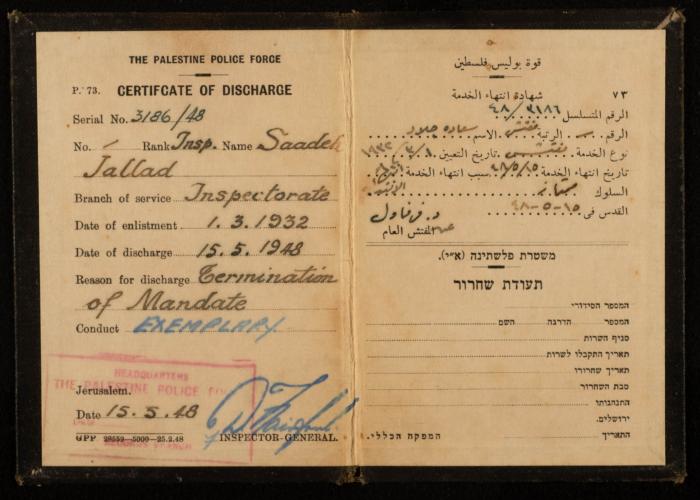 THE PALESTINE POLICE FORCE
P. 73. CERTIFCATE OF DISCHARGE
Serial No. 3186/48
No. – Rank Insp. Name Saadeh
Jallad
Branch of service Inspectorate
Date of enlistment 1.3.1932
Date of discharge 15.5.1948
Reason for discharge Termination
of Mandate
Conduct EXEMPLARY
HEADQUARTERS
THE PALESTINE POLICE
Jerusalem.
Date 15.5.48
GPP 28552—5000—25.2.48 INSPECTOR-GENERAL.
قوة بوليس فلسطين
٧٣ شهادة انتهاء الخدمة
الرقم المتسلسل ٣١٨٦/٤٨
الرقم الرتبة مفتش الاسم سعاده جلاد
نوع الخدمة تاريخ التعيين ١/٣/١٩٣٢
تاريخ انتهاء الخدمة ١٥/٥/٤٨ سبب انتهاء الخدمة
السلوك
القدس في ١٥-٥-٤٨
المفتش العام
משטרת פלשתינה (א"י).
תעודת שחרור
המספר הסידורי
המספר הדרגה השם
סניף השרות
תאריך התקבלו לשרות
תאריך שחרורו
סבת השחרור
התנהגותו
ירושלים.
התאריך המפקח הכללי.